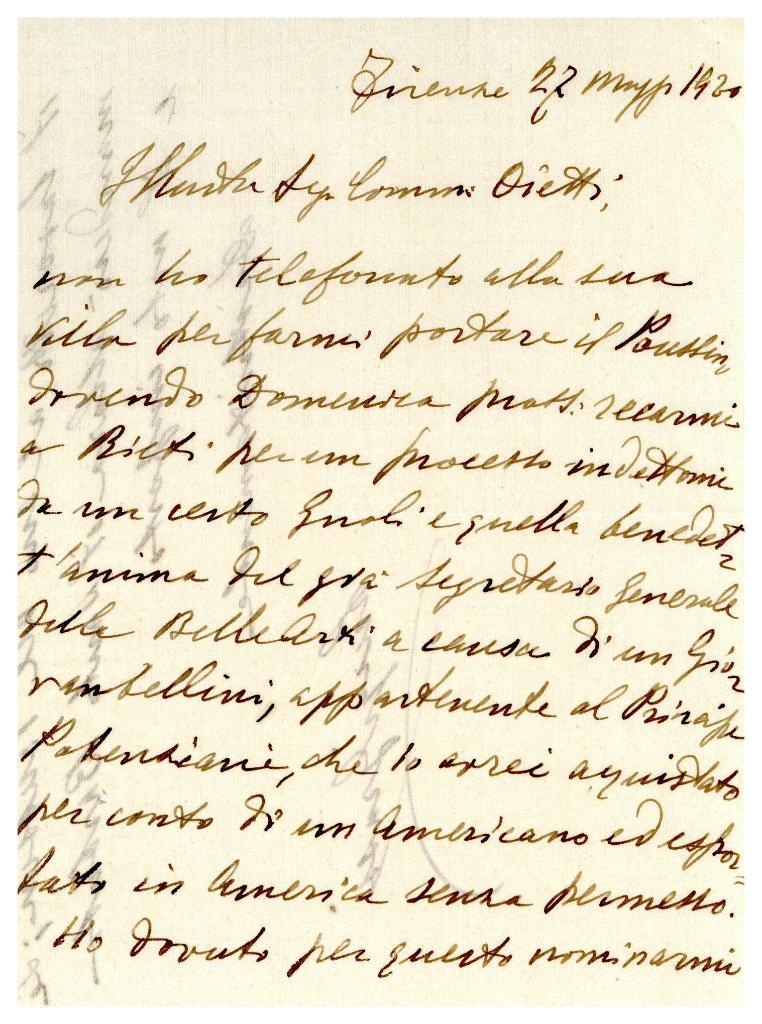 Firenze 22 Magg. 1920
Illustre Sig. Comm. Ojetti,
non ho telefonato alla sua
villa per farmi portare il Poussin,
dovendo Domenica pross. recarmi
a Rieti per un processo indettomi
da un certo Gnoli e quella benedet-
t'anima del già Segretario Generale
delle Belle Arti a causa di un Gio-
vanbellini, appartenente al Principe
Potenziani, che io avrei aquistato
per conto di un Americano ed espor-
tato in America senza permesso.
Ho dovuto per questo nominarmi